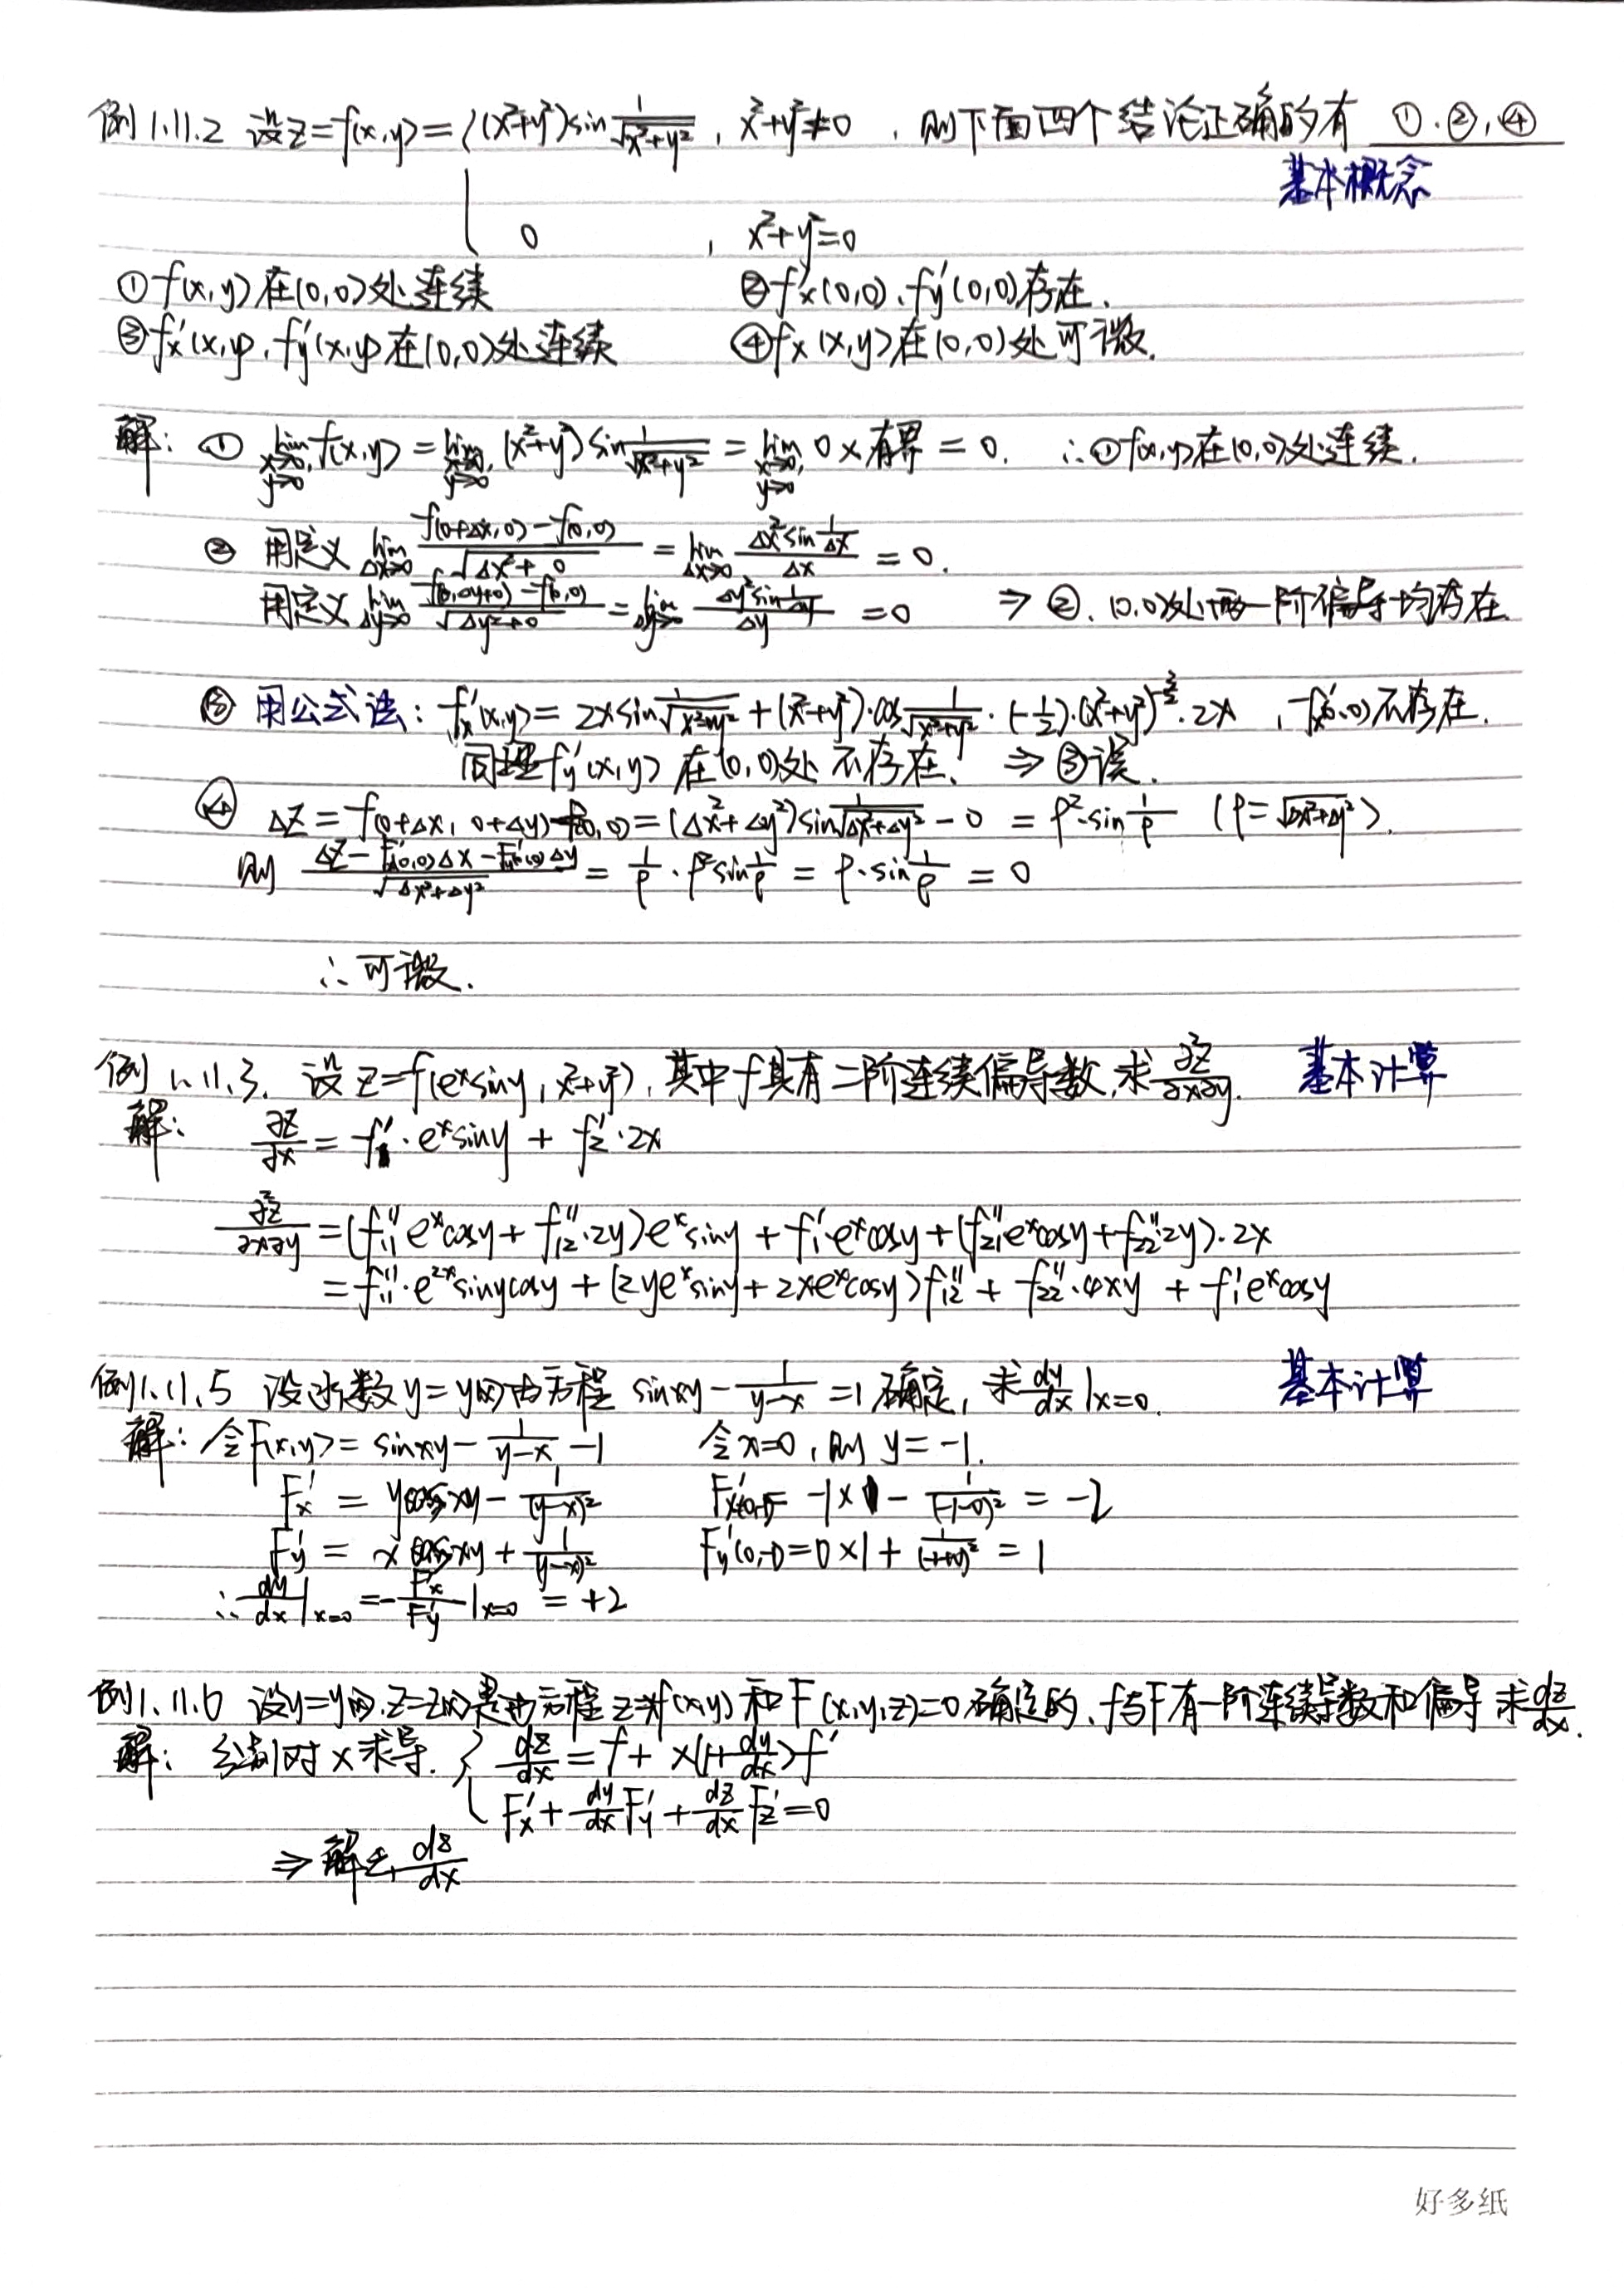 例1.11.2 设z=f(x,y)={(x²+y²)sin 1/√(x²+y²), x²+y²≠0 , 则下面四个结论正确的有 ①.②,④
基本概念
0 , x²+y²=0
①f(x,y)在(0,0)处连续 ②f'x(0,0)、f'y(0,0)存在.
③f'x(x,y),f'y(x,y)在(0,0)处连续 ④fx(x,y)在(0,0)处可微.
解: ① lim x→0,y→0 f(x,y)=lim x→0,y→0 (x²+y²)sin 1/√(x²+y²)=lim x→0,y→0 0×有界=0. ∴①f(x,y)在(0,0)处连续.
② 用定义 lim Δx→0 (f(0+Δx,0)-f(0,0))/√(Δx²+0)=lim Δx→0 (Δx² sin 1/Δx)/Δx=0.
用定义 lim Δy→0 (f(0,Δy+0)-f(0,0))/√(Δy²+0)=lim Δy→0 (Δy² sin 1/Δy)/Δy=0 ⇒ ②. (0,0)处两一阶偏导均存在.
③ 用公式法: f'x(x,y)=2x sin 1/√(x²+y²)+(x²+y²)·cos 1/√(x²+y²)·(-1/2)·(x²+y²)^(-3/2)·2x , f'x(0,0)不存在.
同理f'y(x,y)在(0,0)处不存在, ⇒ ③误.
④ Δz=f(0+Δx, 0+Δy)-f(0,0)=(Δx²+Δy²)sin 1/√(Δx²+Δy²)-0=ρ²·sin 1/ρ (ρ=√(Δx²+Δy²)).
则 (Δz-F'x(0,0)Δx-F'y(0,0)Δy)/√(Δx²+Δy²)=1/ρ·ρ² sin 1/ρ=ρ·sin 1/ρ=0
∴可微.
例1.11.3. 设z=f(eˣsiny, x²+y²),其中f具有二阶连续偏导数,求∂²z/∂x∂y. 基本计算
解: ∂z/∂x=f'₁·eˣsiny+f'₂·2x
∂²z/∂x∂y=(f''₁₁eˣcosy+f''₁₂·2y)eˣsiny+f'₁·eˣcosy+(f''₂₁eˣcosy+f''₂₂2y)·2x
=f''₁₁·e²ˣsinycosy+(2yeˣsiny+2xeˣcosy)f''₁₂+f''₂₂·4xy+f'₁eˣcosy
例1.11.5 设函数y=y(x)由方程 sinxy-1/(y-x)=1确定, 求dy/dx|x=0. 基本计算
解: 令F(x,y)=sinxy-1/(y-x)-1 令x=0,则y=-1.
F'x=ycosxy-1/(y-x)² F'x(0,-1)=-1×1-1/(-1-0)²=-2
F'y=xcosxy+1/(y-x)² F'y(0,-1)=0×1+1/(-1+0)²=1
∴dy/dx|x=0=-F'x/F'y|x=0=+2
例1.11.6 设y=y(x),z=z(x)是由方程z=xf(x,y)和F(x,y,z)=0确定的,f与F有一阶连续导数和偏导 求dz/dx.
解: 分别对x求导. {dz/dx=f+x(1+dy/dx)f'
F'x+dy/dx F'y+dz/dx F'z=0
⇒解出dz/dx
好多纸